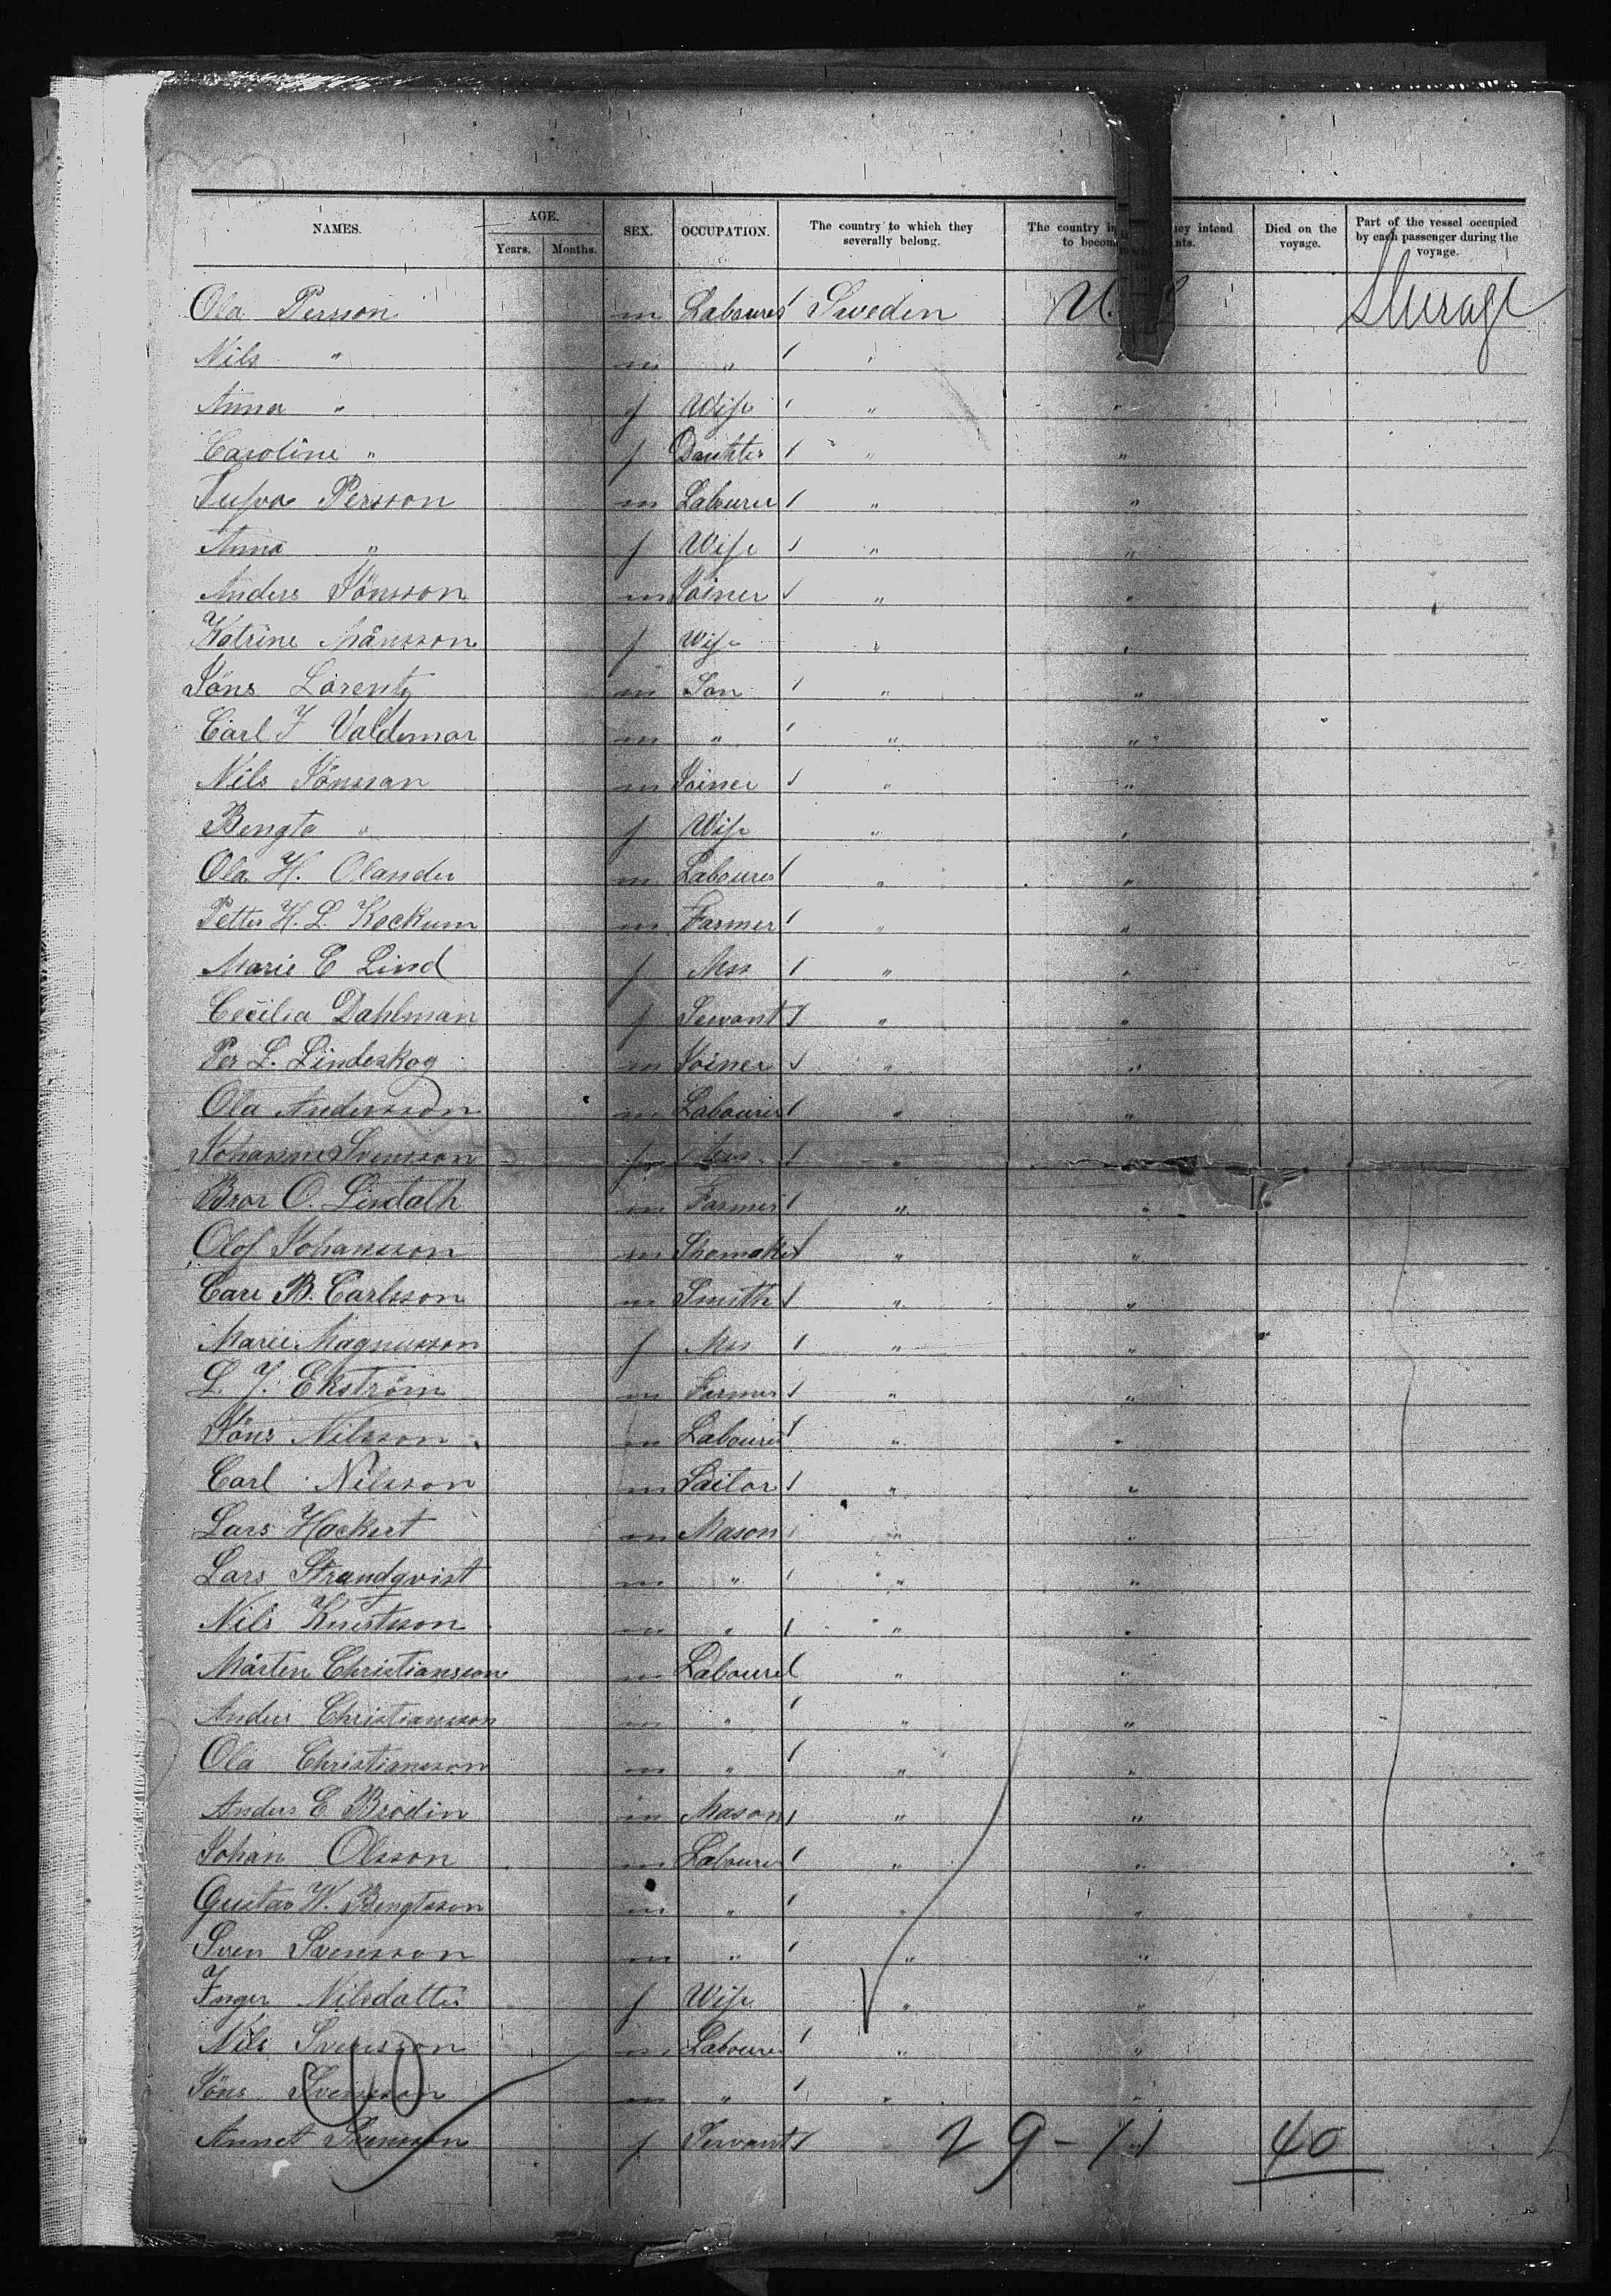 NAMES. AGE. SEX. OCCUPATION. The country to which they severally belong. The country in they intend to become Died on the voyage. Part of the vessel occupied by each passenger during the voyage.
Years. Months.
Ola Persson m Labourer Sweden U. Sterage
Nils " m " " "
Anna " f Wife " "
Caroline " f Dauhter " "
Persson m Labourer " "
Anna " f Wife " "
Anders Jönsson m Joiner " "
Katrine Månsson f Wife " "
Jöns Lorentz m Son " "
Carl J Valdemar m " " "
Nils Jönsson m Joiner " "
Bengta " f Wife " "
Ola H. Olander m Labourer " "
Petter H. L. Kockum m Farmer " "
Marie C Lind f Mss " "
Cecilia Dahlman f Servant " "
Per L. Lindeskog m Joiner " "
Ola Andersson m Labourer " "
Johanne Svensson f Mss " "
Bror O. Lindalh m Farmer " "
Olof Johansson m Shomaker " "
Carl B. Carlsson m Smith " "
Marie Magnusson f Mss " "
L. J. Ekström m Farmer " "
Jöns Nilsson m Labourer " "
Carl Nilsson m Sailor " "
Lars Hackert m Mason " "
Lars Strandqvist m " " "
Nils Knutsson m " " "
Mårten Christiansson m Labourer " "
Anders Christiansson m " " "
Ola Christiansson m " " "
Anders E Brodin m Mason " "
Johan Olsson m Labourer " "
Gustav W. Bengtsson m " " "
Sven Svensson m " " "
Inger Nilsdatter f Wife " "
Nils Svensson m Labourer " "
Jöns Svensson m " " "
40
Annet Svensson f Servant " "
29-11 40